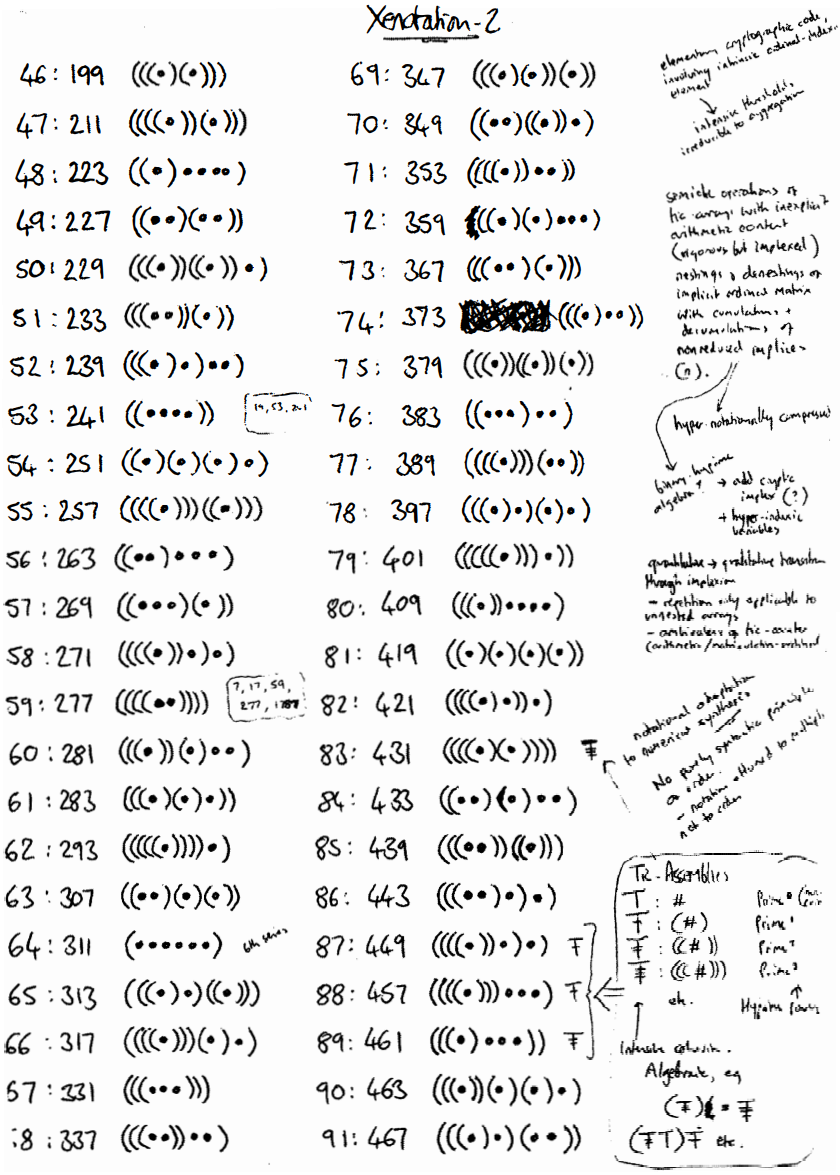 Xenotation-2
46: 199 (((•)(•)))
47: 211 ((((•))(•)))
48: 223 ((•)••••)
49: 227 ((••)(••))
50: 229 (((•))((•))•)
51: 233 (((••))(•))
52: 239 (((•)•)••)
53: 241 ((••••))
54: 251 ((•)(•)(•)•)
55: 257 ((((•)))((•)))
56: 263 ((••)•••)
57: 269 ((•••)(•))
58: 271 ((((•))•)•)
59: 277 ((((••))))
7, 17, 59,
277, 1787
60: 281 (((•))(•)••)
61: 283 (((•)(•)•))
62: 293 (((((•))))•)
63: 307 ((••)(•)(•))
64: 311 (••••••) 6th series
65: 313 (((•)•)((•)))
66: 317 ((((•)))(•)•)
67: 331 (((•••)))
:8: 337 (((••))••)
69: 347 (((•)(•))(•))
70: 349 ((••)((•))•)
71: 353 ((((•))••))
72: 359 (((•)(•)•••)
73: 367 (((••)(•)))
74: 373 (((•)••))
75: 379 (((•))((•))(•))
76: 383 ((•••)••)
77: 389 ((((•)))(••))
78: 397 (((•)•)(•)•)
79: 401 (((((•)))•))
80: 409 (((•))••••)
81: 419 ((•)(•)(•)(•))
82: 421 ((((•)•))•)
83: 431 ((((•)(•))))
84: 433 ((••)(•)••)
85: 439 (((••))((•)))
86: 443 (((••)•)•)
87: 449 ((((•))•)•) Ŧ
88: 457 ((((•)))•••) Ŧ
89: 461 (((•)•••)) Ŧ
90: 463 (((•))(•)(•)•)
91: 467 (((•)•)(••))
elementary cryptographic code,
involving intrinsic ordinal-index
element
intensive thresholds,
irreducible to aggregation
semiotic operations of
tic-arrays with inexplicit
arithmetic content
(rigorous but implexed)
nestings & denestings of
implicit ordinal matrix
with cumulations +
decumulations of
nonreduced implices
hyper-notationally compressed
binary
algebra?
→ add cryptic
implex (?)
+ hyper-indexic
variables
quantitative → qualitative transition
through implexion
- repetition only applicable to
unnested arrays
- of tic-counter
notational adaptation
to numerical synthesis
No purely syntactic principle
of order.
- notation attuned to multiple
not to order
Tic-Assemblies
T : # Prime⁰
Ŧ : (#) Prime¹
: ((#)) Prime²
: (((#))) Prime³
etc.
Algebraic, eg
(Ŧ) =
etc.